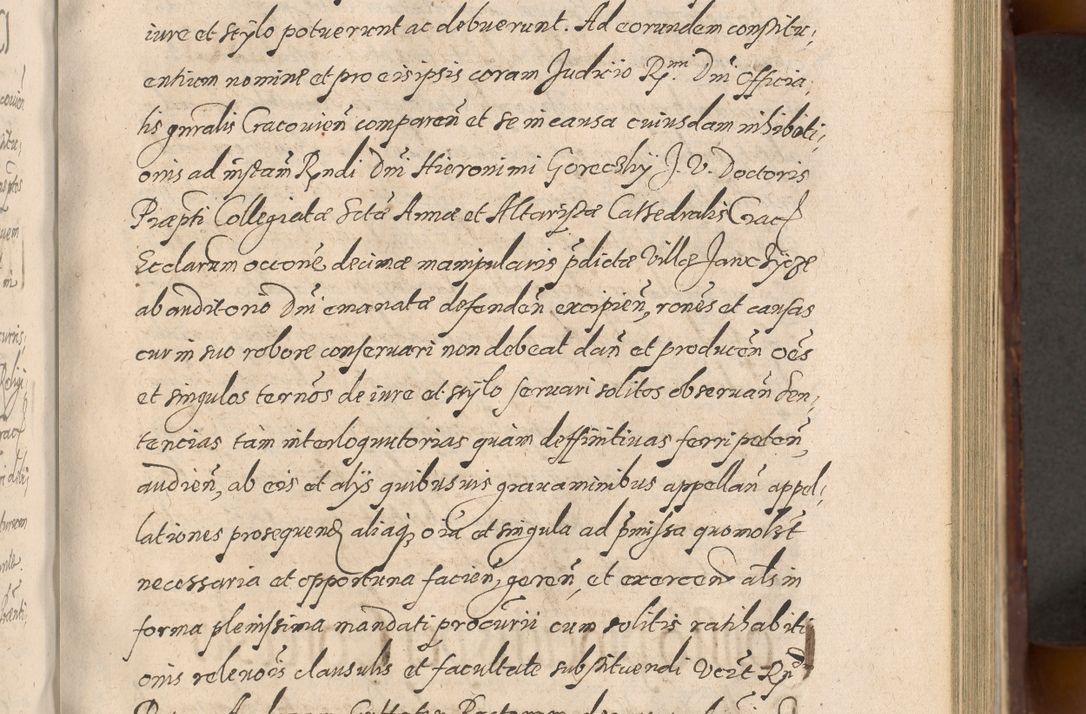 iure et stylo potuerunt ac debuerunt. Ad eorundem constitu,
entium nomine et pro eis ipsis coram Judicio R.mi Dni Officia,
lis gnralis Cracovien comparen et se in causa cuiusdam inhibiti,
onis ad instan Rndi Dni Hieronimi Goreczky J. V. Doctoris
Præpti Collegiatæ Sctæ Annæ et Altaristæ Cathedralis Crac
Ecclarum occone decimæ manipularis pdictæ Villæ
ab auditorio Dni emanatæ defenden, excipien, rones et causas
cur in suo robore conservari non debeat dan et producen oes
et singulos ternos de iure et stylo servari solitos observan Sen,
tencias tam interloquutorias quam deffinitivas ferri peten,
audien, ab eis et alijs quibusvis gravaminibus appellan appel,
lationes prosequend aliaq, oia et singula ad pmissa quomolbt
necessaria et opportuna facien, geren, et exercen als in
forma plenissima mandati procurii cum solitis ratihabiti
onis relevois clausulis et facultate substituendi Vert Rnd